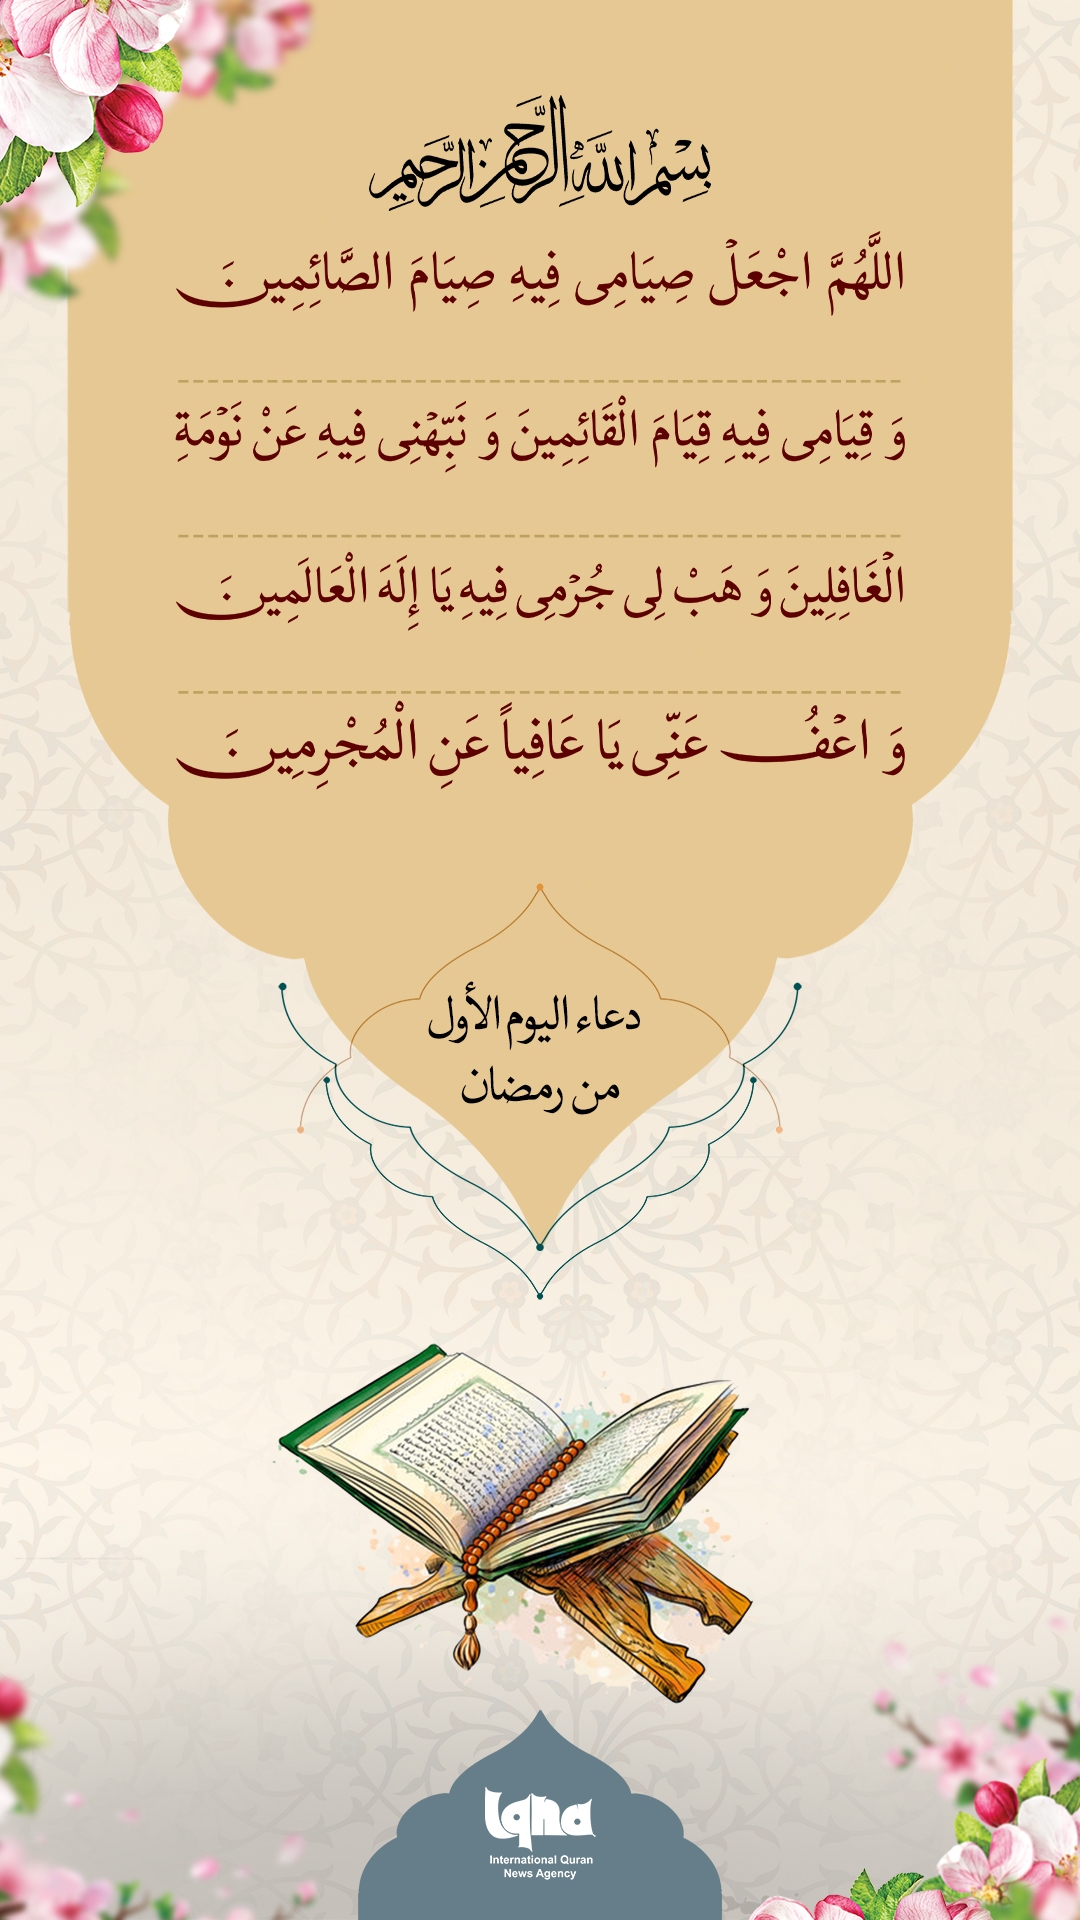 بِسْمِ اللَّهِ الرَّحْمَنِ الرَّحِيمِ
اللَّهُمَّ اجْعَلْ صِيَامِى فِيهِ صِيَامَ الصَّائِمِينَ
وَ قِيَامِى فِيهِ قِيَامَ الْقَائِمِينَ وَ نَبِّهْنِى فِيهِ عَنْ نَوْمَةِ
الْغَافِلِينَ وَ هَبْ لِى جُرْمِى فِيهِ يَا إِلَهَ الْعَالَمِينَ
وَ اعْفُ عَنِّى يَا عَافِياً عَنِ الْمُجْرِمِينَ
دعاء اليوم الأول
من رمضان
Iqna
International Quran
News Agency